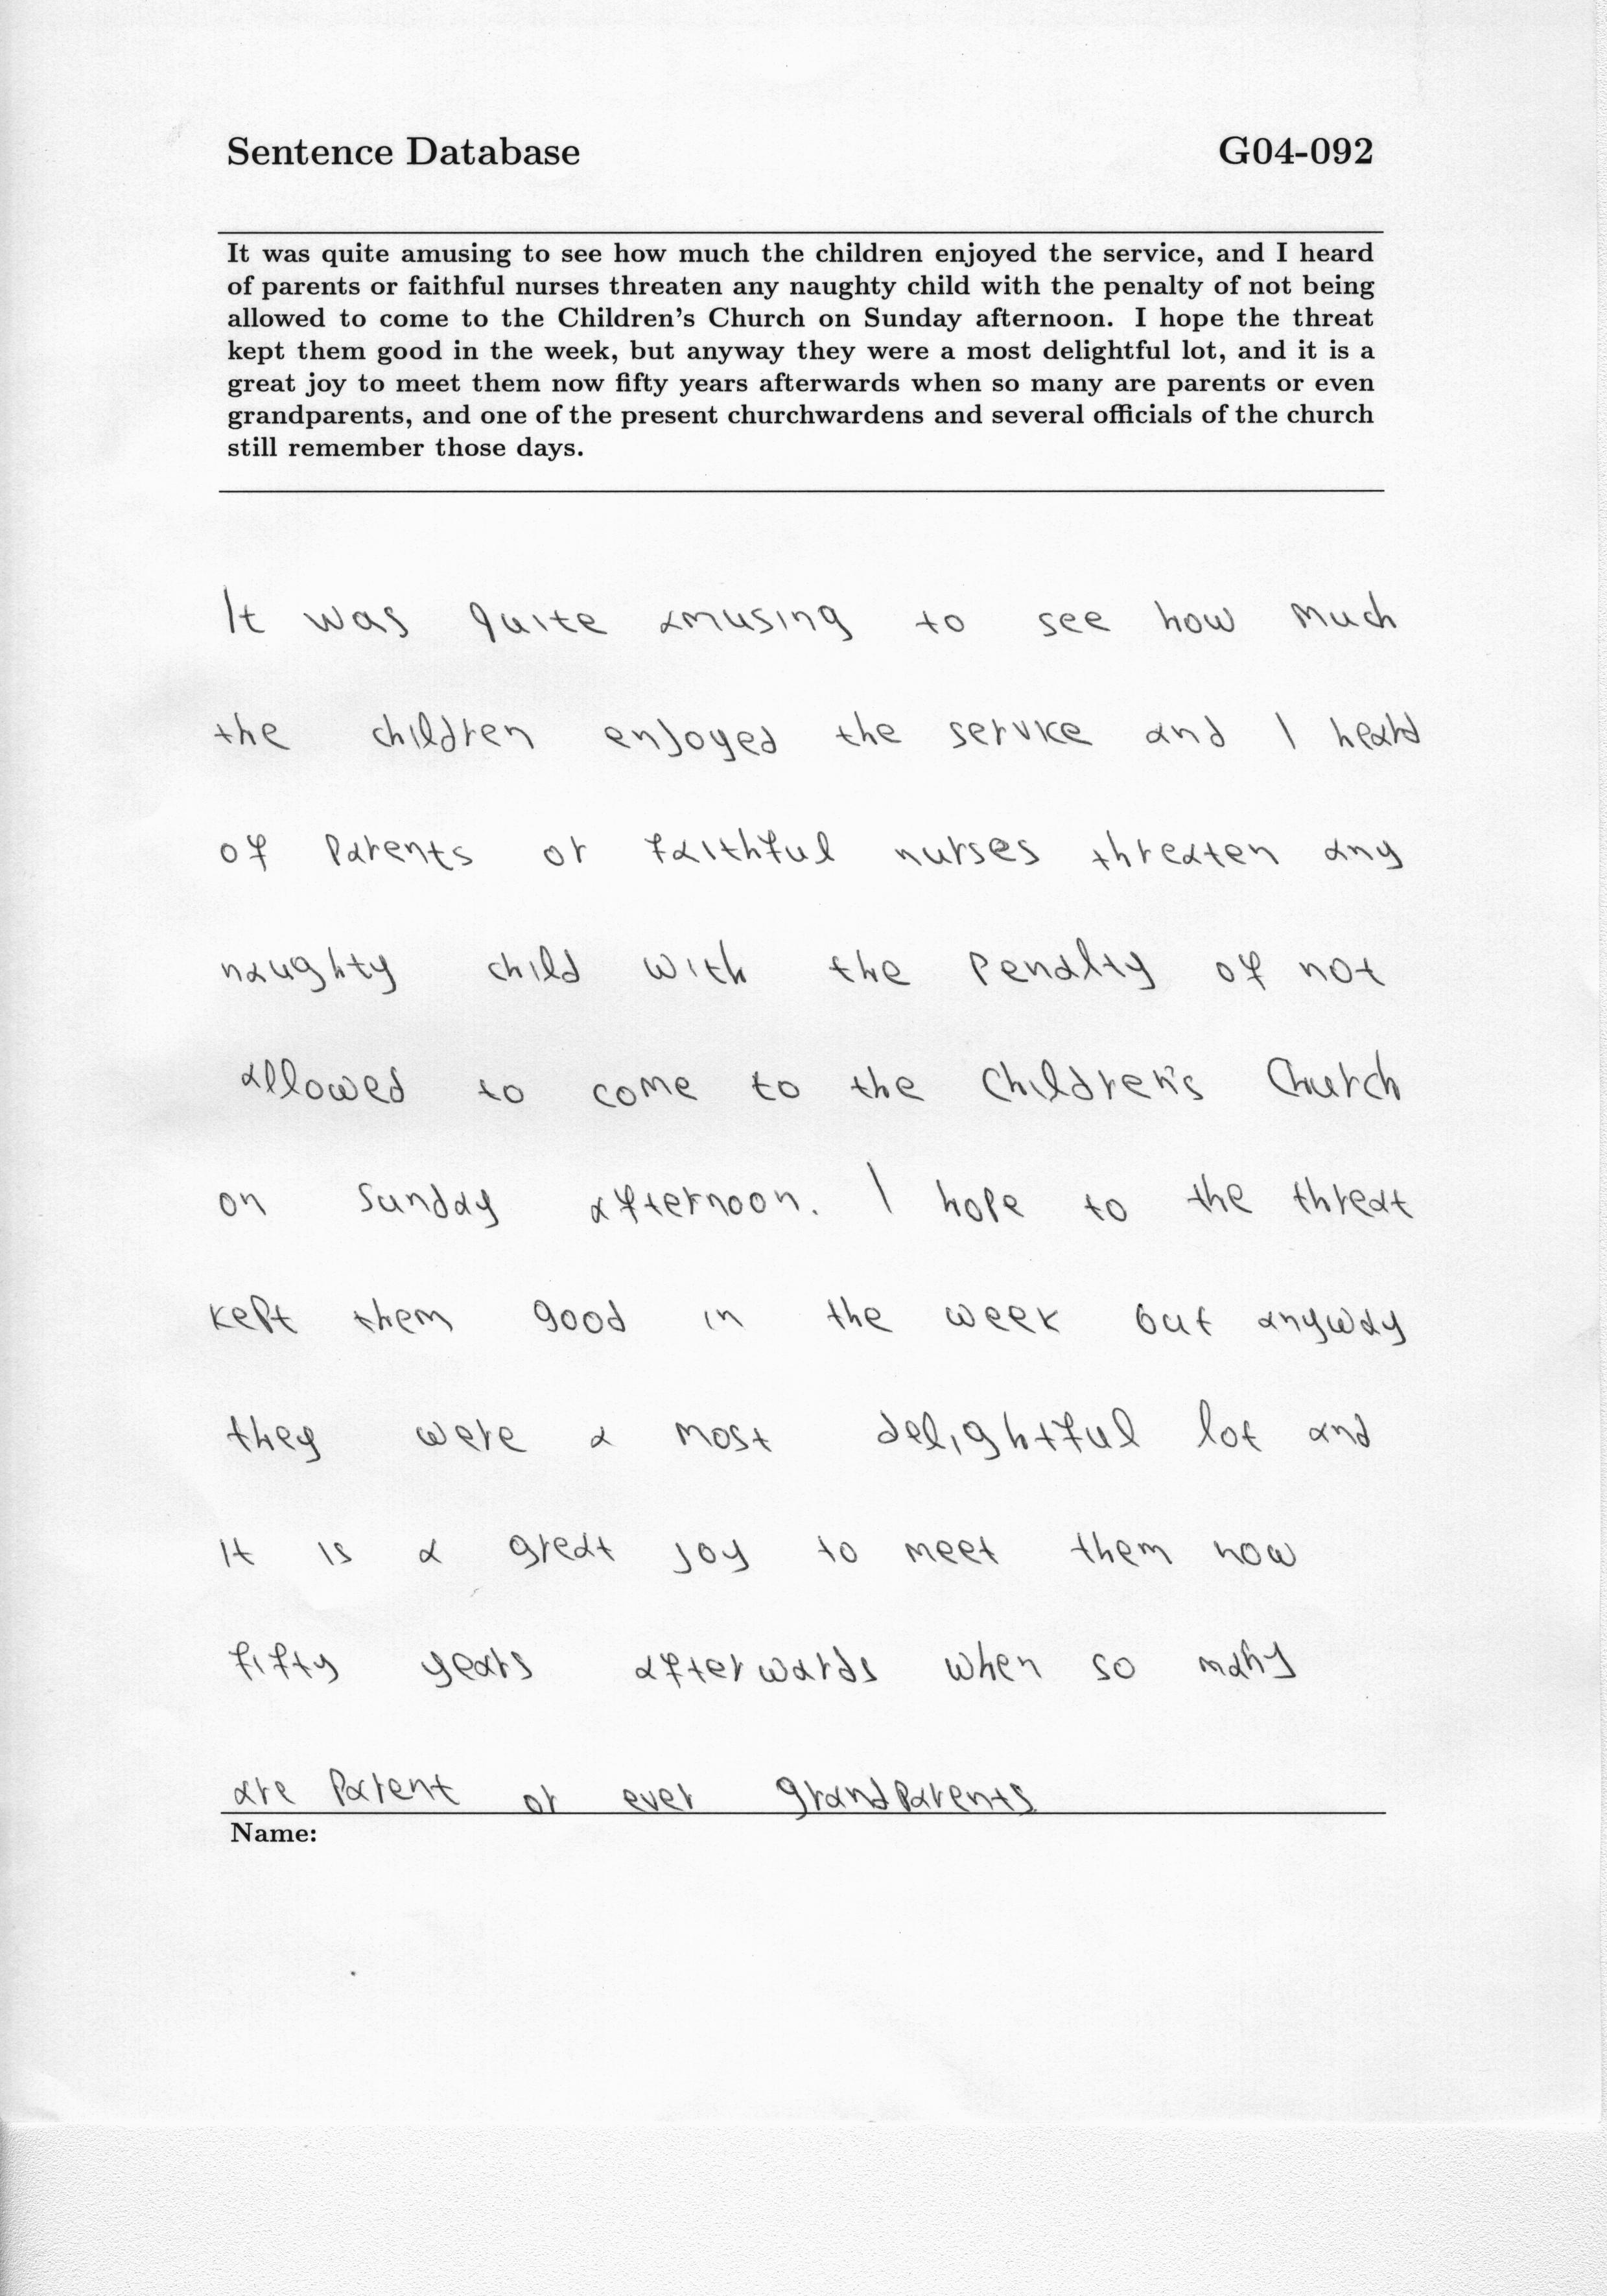 Sentence Database G04-092
It was quite amusing to see how much the children enjoyed the service, and I heard
of parents or faithful nurses threaten any naughty child with the penalty of not being
allowed to come to the Children's Church on Sunday afternoon. I hope the threat
kept them good in the week, but anyway they were a most delightful lot, and it is a
great joy to meet them now fifty years afterwards when so many are parents or even
grandparents, and one of the present churchwardens and several officials of the church
still remember those days.
It was quite amusing to see how much
the children enjoyed the service and I heard
of parents or faithful nurses threaten any
naughty child with the penalty of not
allowed to come to the Children's Church
on Sunday afternoon. I hope to the threat
kept them good in the week but anyway
they were a most delightful lot and
it is a great joy to meet them now
fifty years afterwards when so many
are parent or ever grandparents
Name: